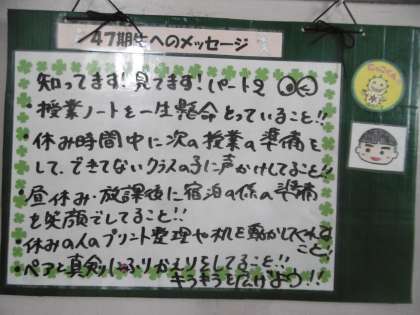 47期生へのメッセージ
知ってます!見てます!(パート2
授業ノートを一生懸命とっていること!!
・休み時間中に次の授業の準備を
して、できてないクラスの子に声かけしてること!!
・昼休み・放課後に宿泊の係の準備
を笑顔でしてること!!
・休みの人のプリント整理や机を動かしてくれてる
こと!!
・ペアと真剣にふりかえりをしてること!!
キラキラを広げよう!!